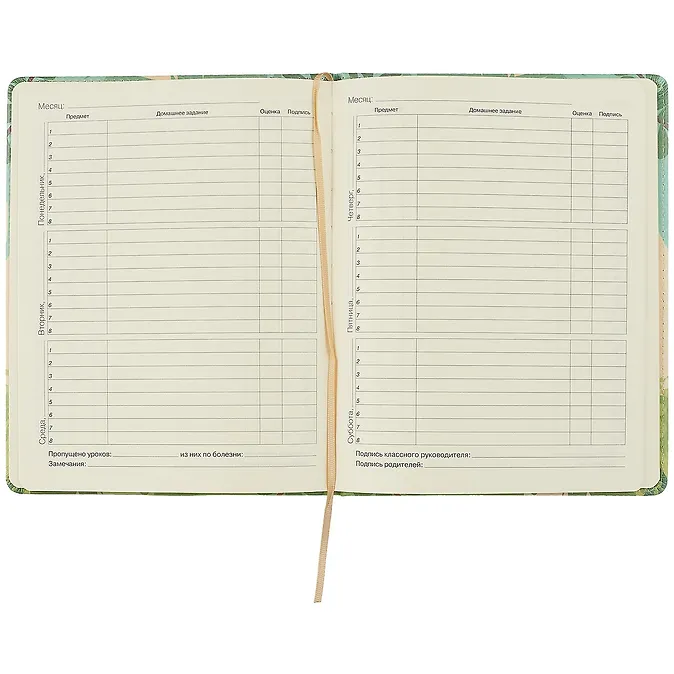 Месяц:
Предмет Домашнее задание Оценка Подпись
Понедельник,
1
2
3
4
5
6
7
8
Вторник,
1
2
3
4
5
6
7
8
Среда,
1
2
3
4
5
6
7
8
Пропущено уроков: из них по болезни:
Замечания:
Месяц:
Предмет Домашнее задание Оценка Подпись
Четверг,
1
2
3
4
5
6
7
8
Пятница,
1
2
3
4
5
6
7
8
Суббота,
1
2
3
4
5
6
7
8
Подпись классного руководителя:
Подпись родителей: